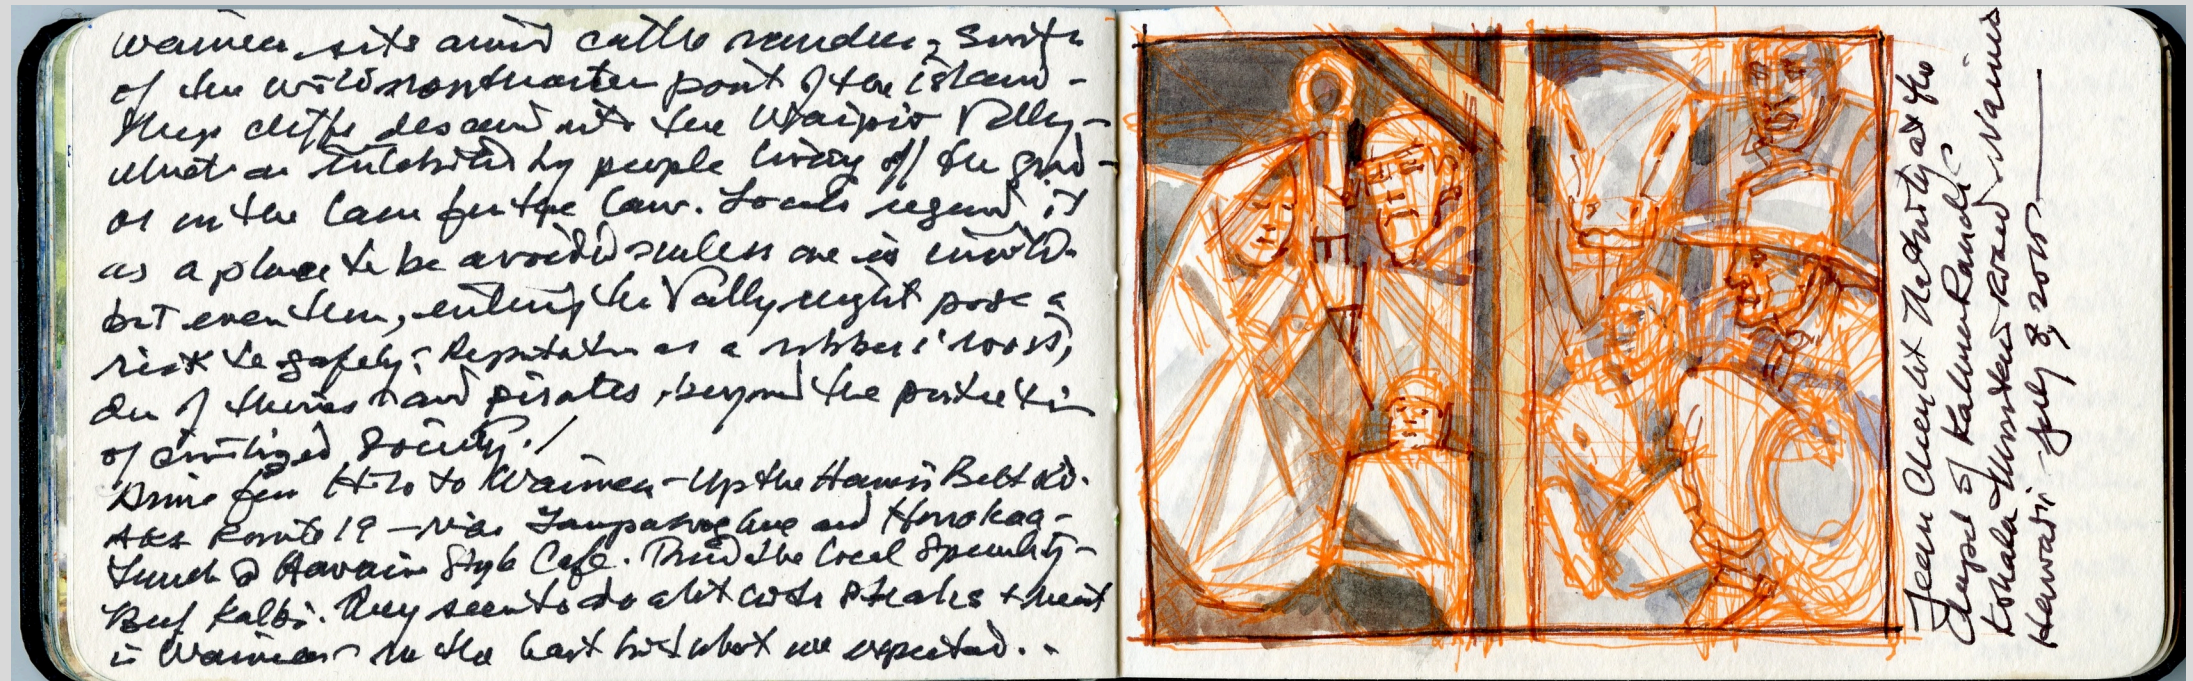 Waimea sits amid cattle ranches, South
of the wild northeastern point of the island -
Steep cliffs descend into the Waipio Valley -
which is inhabited by people living off the grid -
or on the lam for the law. Locals regard it
as a place to be avoided unless one is invited
but even then, entering the Valley might pose a
risk to safety; Reputation as a robber's roost,
den of thieves and pirates, beyond the protection
of civilized Society.
Drive from Hilo to Waimea - Up the Hawaii Belt Rd.
AKA Route 19 - via and Honokaa -
Lunch @ Hawaiian Style Cafe. Tried the local Specialty -
Beef Kalbi. They seem to do a lot with steaks + meat
in Waimea - not in the least bit what we expected..
Jean Charlot Nativity at the
Chapel of Kahua Ranch
Kohala Mountain Road Waimea
Hawaii - July 8, 2015